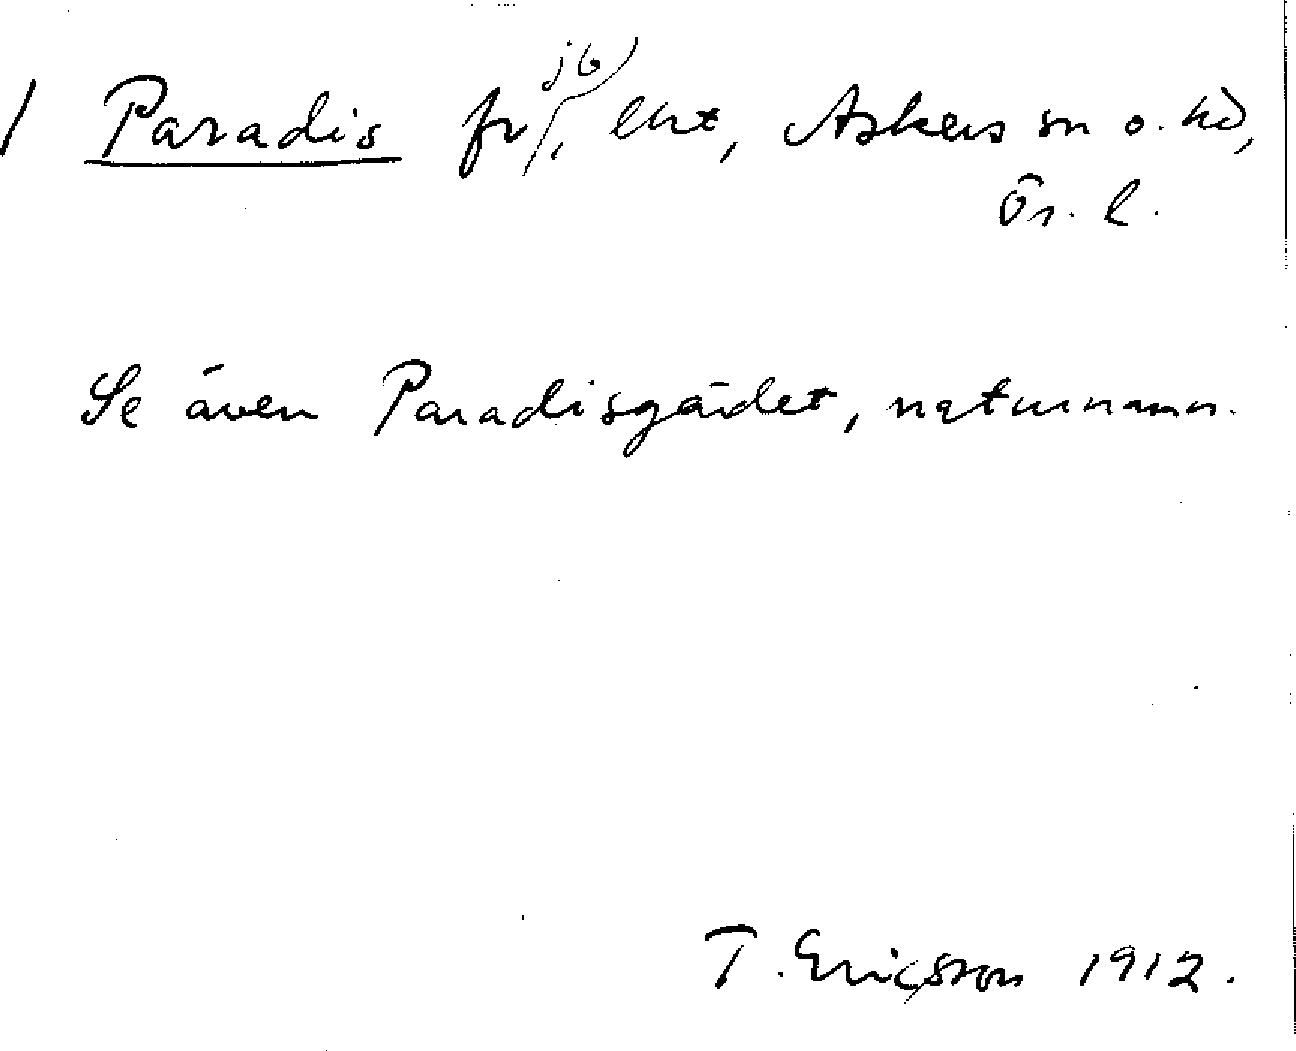 / Paradis fr jb, ekt, Askers sn o. hd,
Ör. l.
Se även Paradisgärdet, naturnamn.
T. Ericsson 1912.